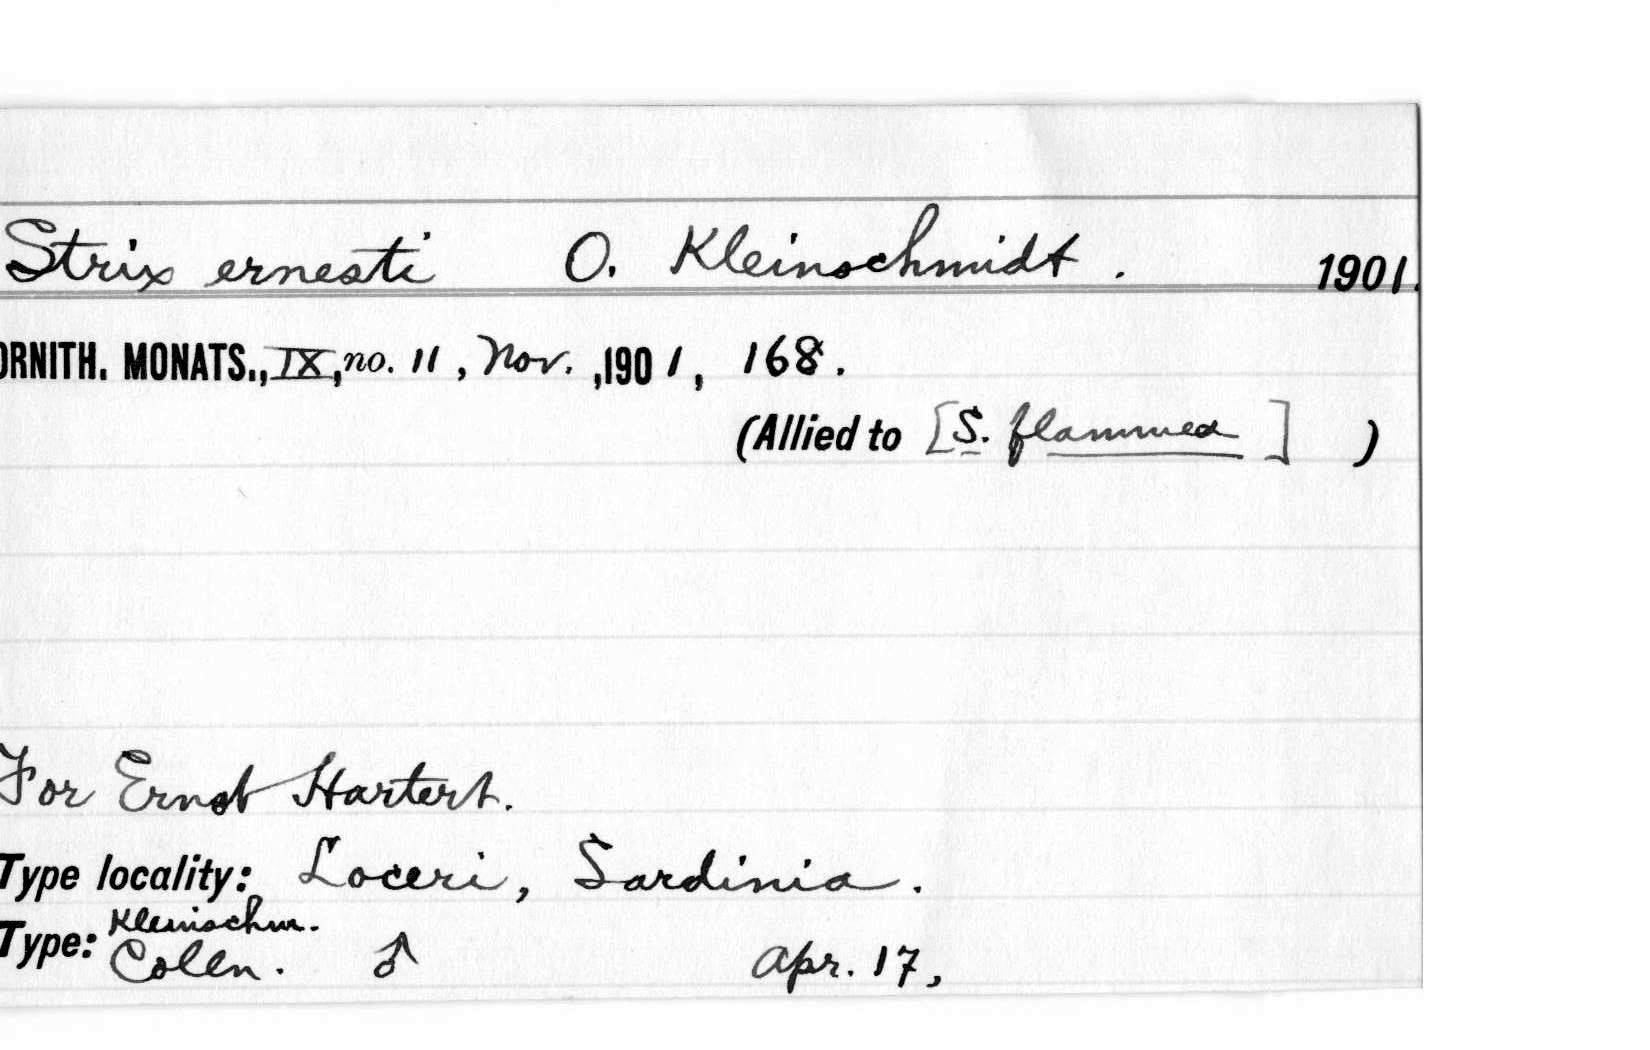 Strix ernesti O. Kleinschmidt. 1901.
ORNITH. MONATS., IX, no. 11, Nov. ,1901, 168.
(Allied to [S. flammea] )
For Ernst Hartert.
Type locality: Loceri, Sardinia.
Kleinschm.
Type: Colln. ♂ Apr. 17,